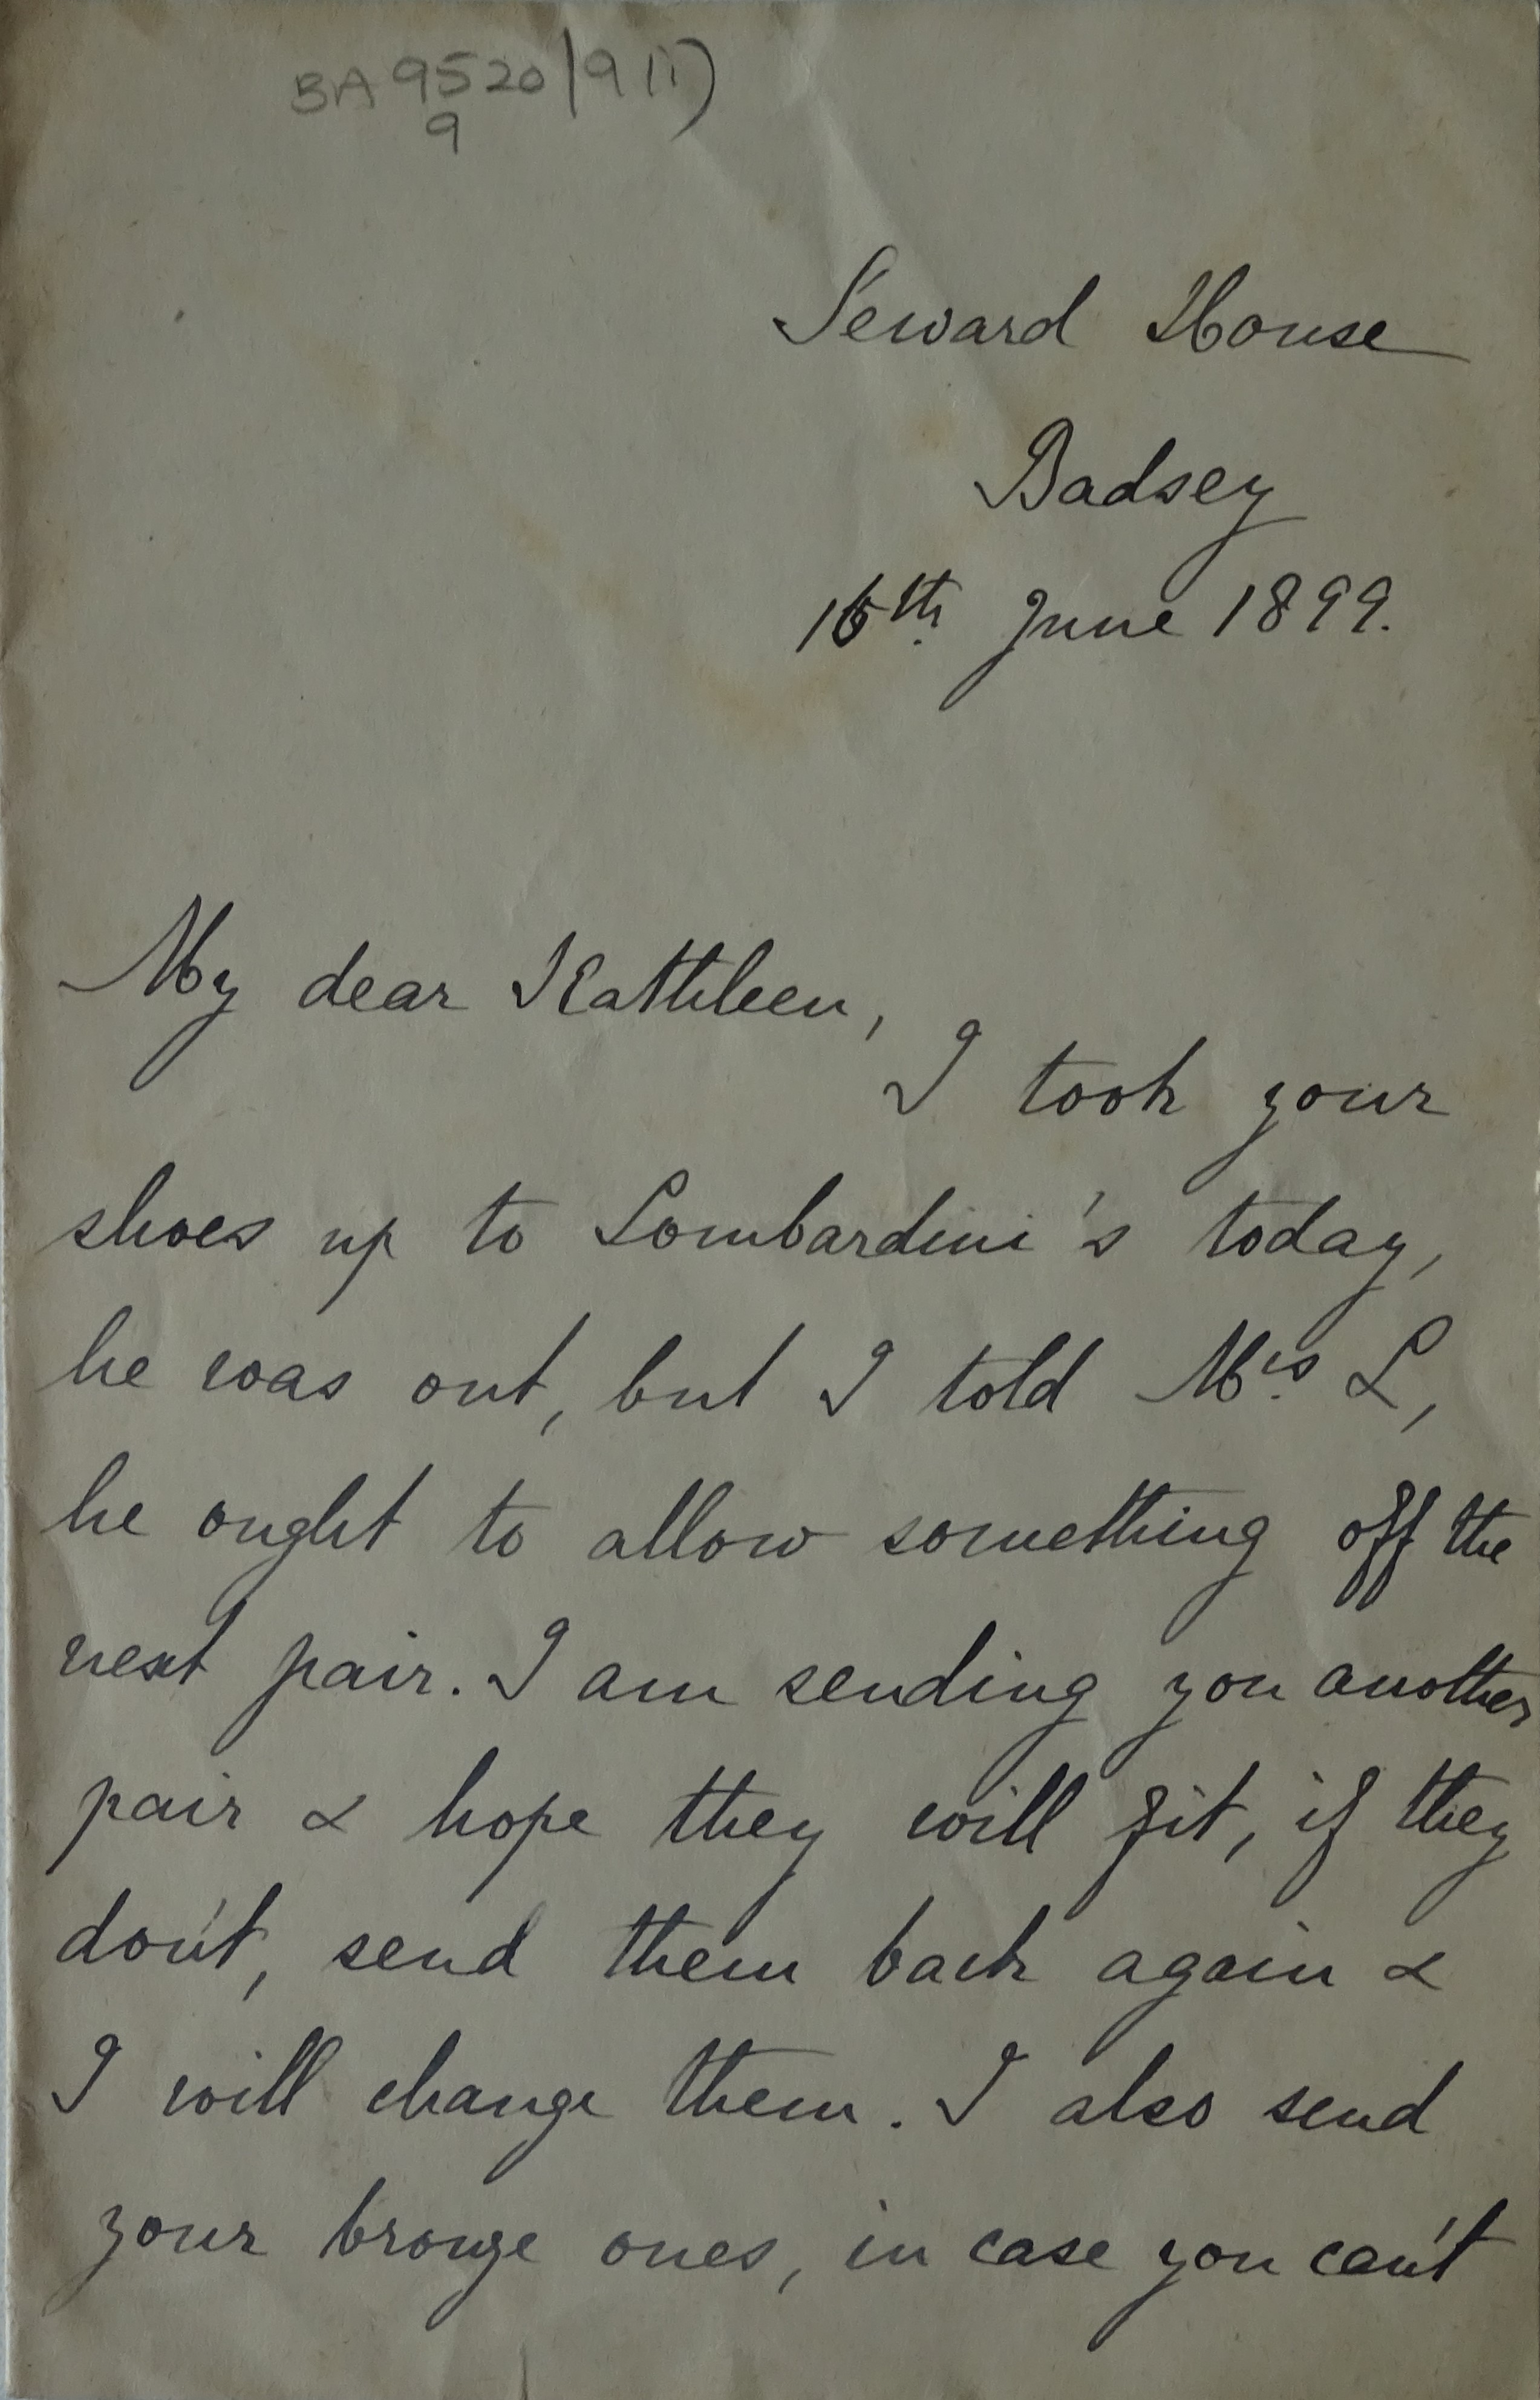 BA 9520/9(i)
9
Seward House
Badsey
16th June 1899.
My dear Kathleen,
I took your
shoes up to Lombardini's today,
he was out, but I told Mrs L,
he ought to allow something off the
next pair. I am sending you another
pair & hope they will fit, if they
don't, send them back again &
I will change them. I also send
your bronze ones, in case you can't